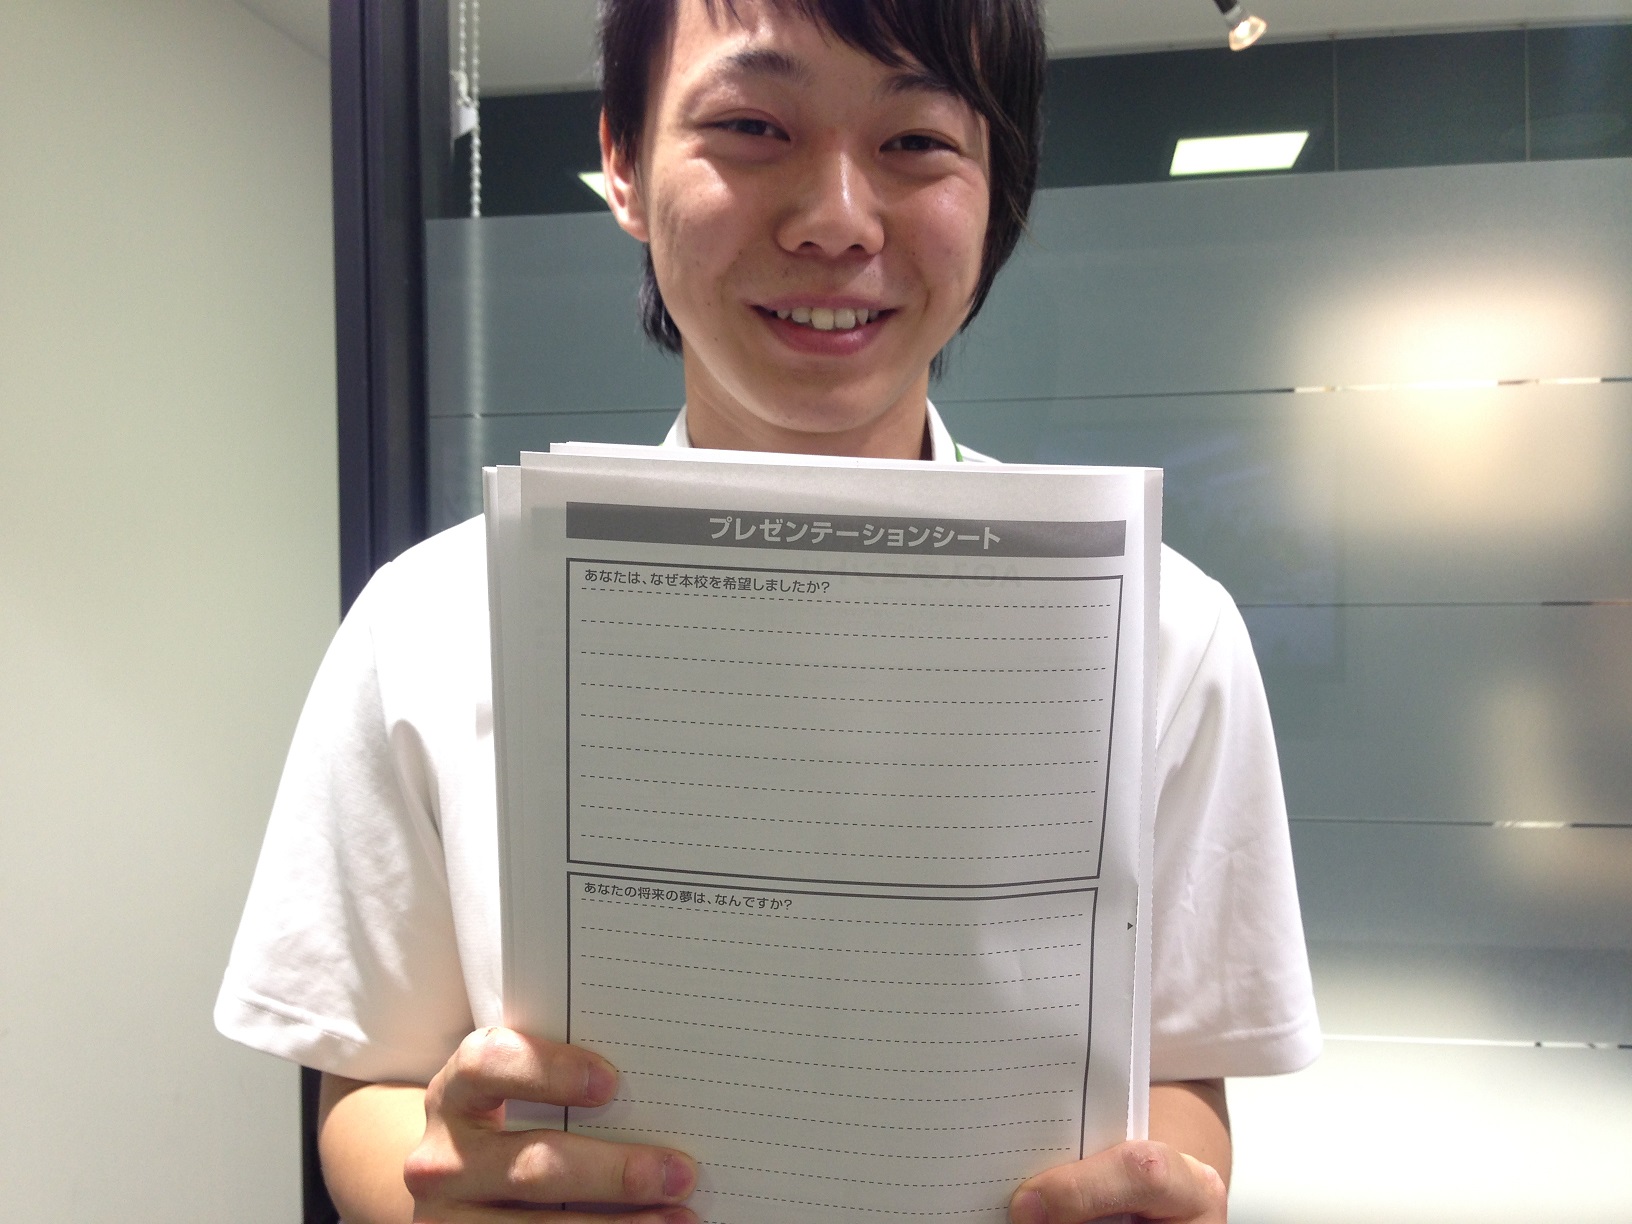 プレゼンテーションシート
あなたは、なぜ本校を希望しましたか?
あなたの将来の夢は、なんですか?